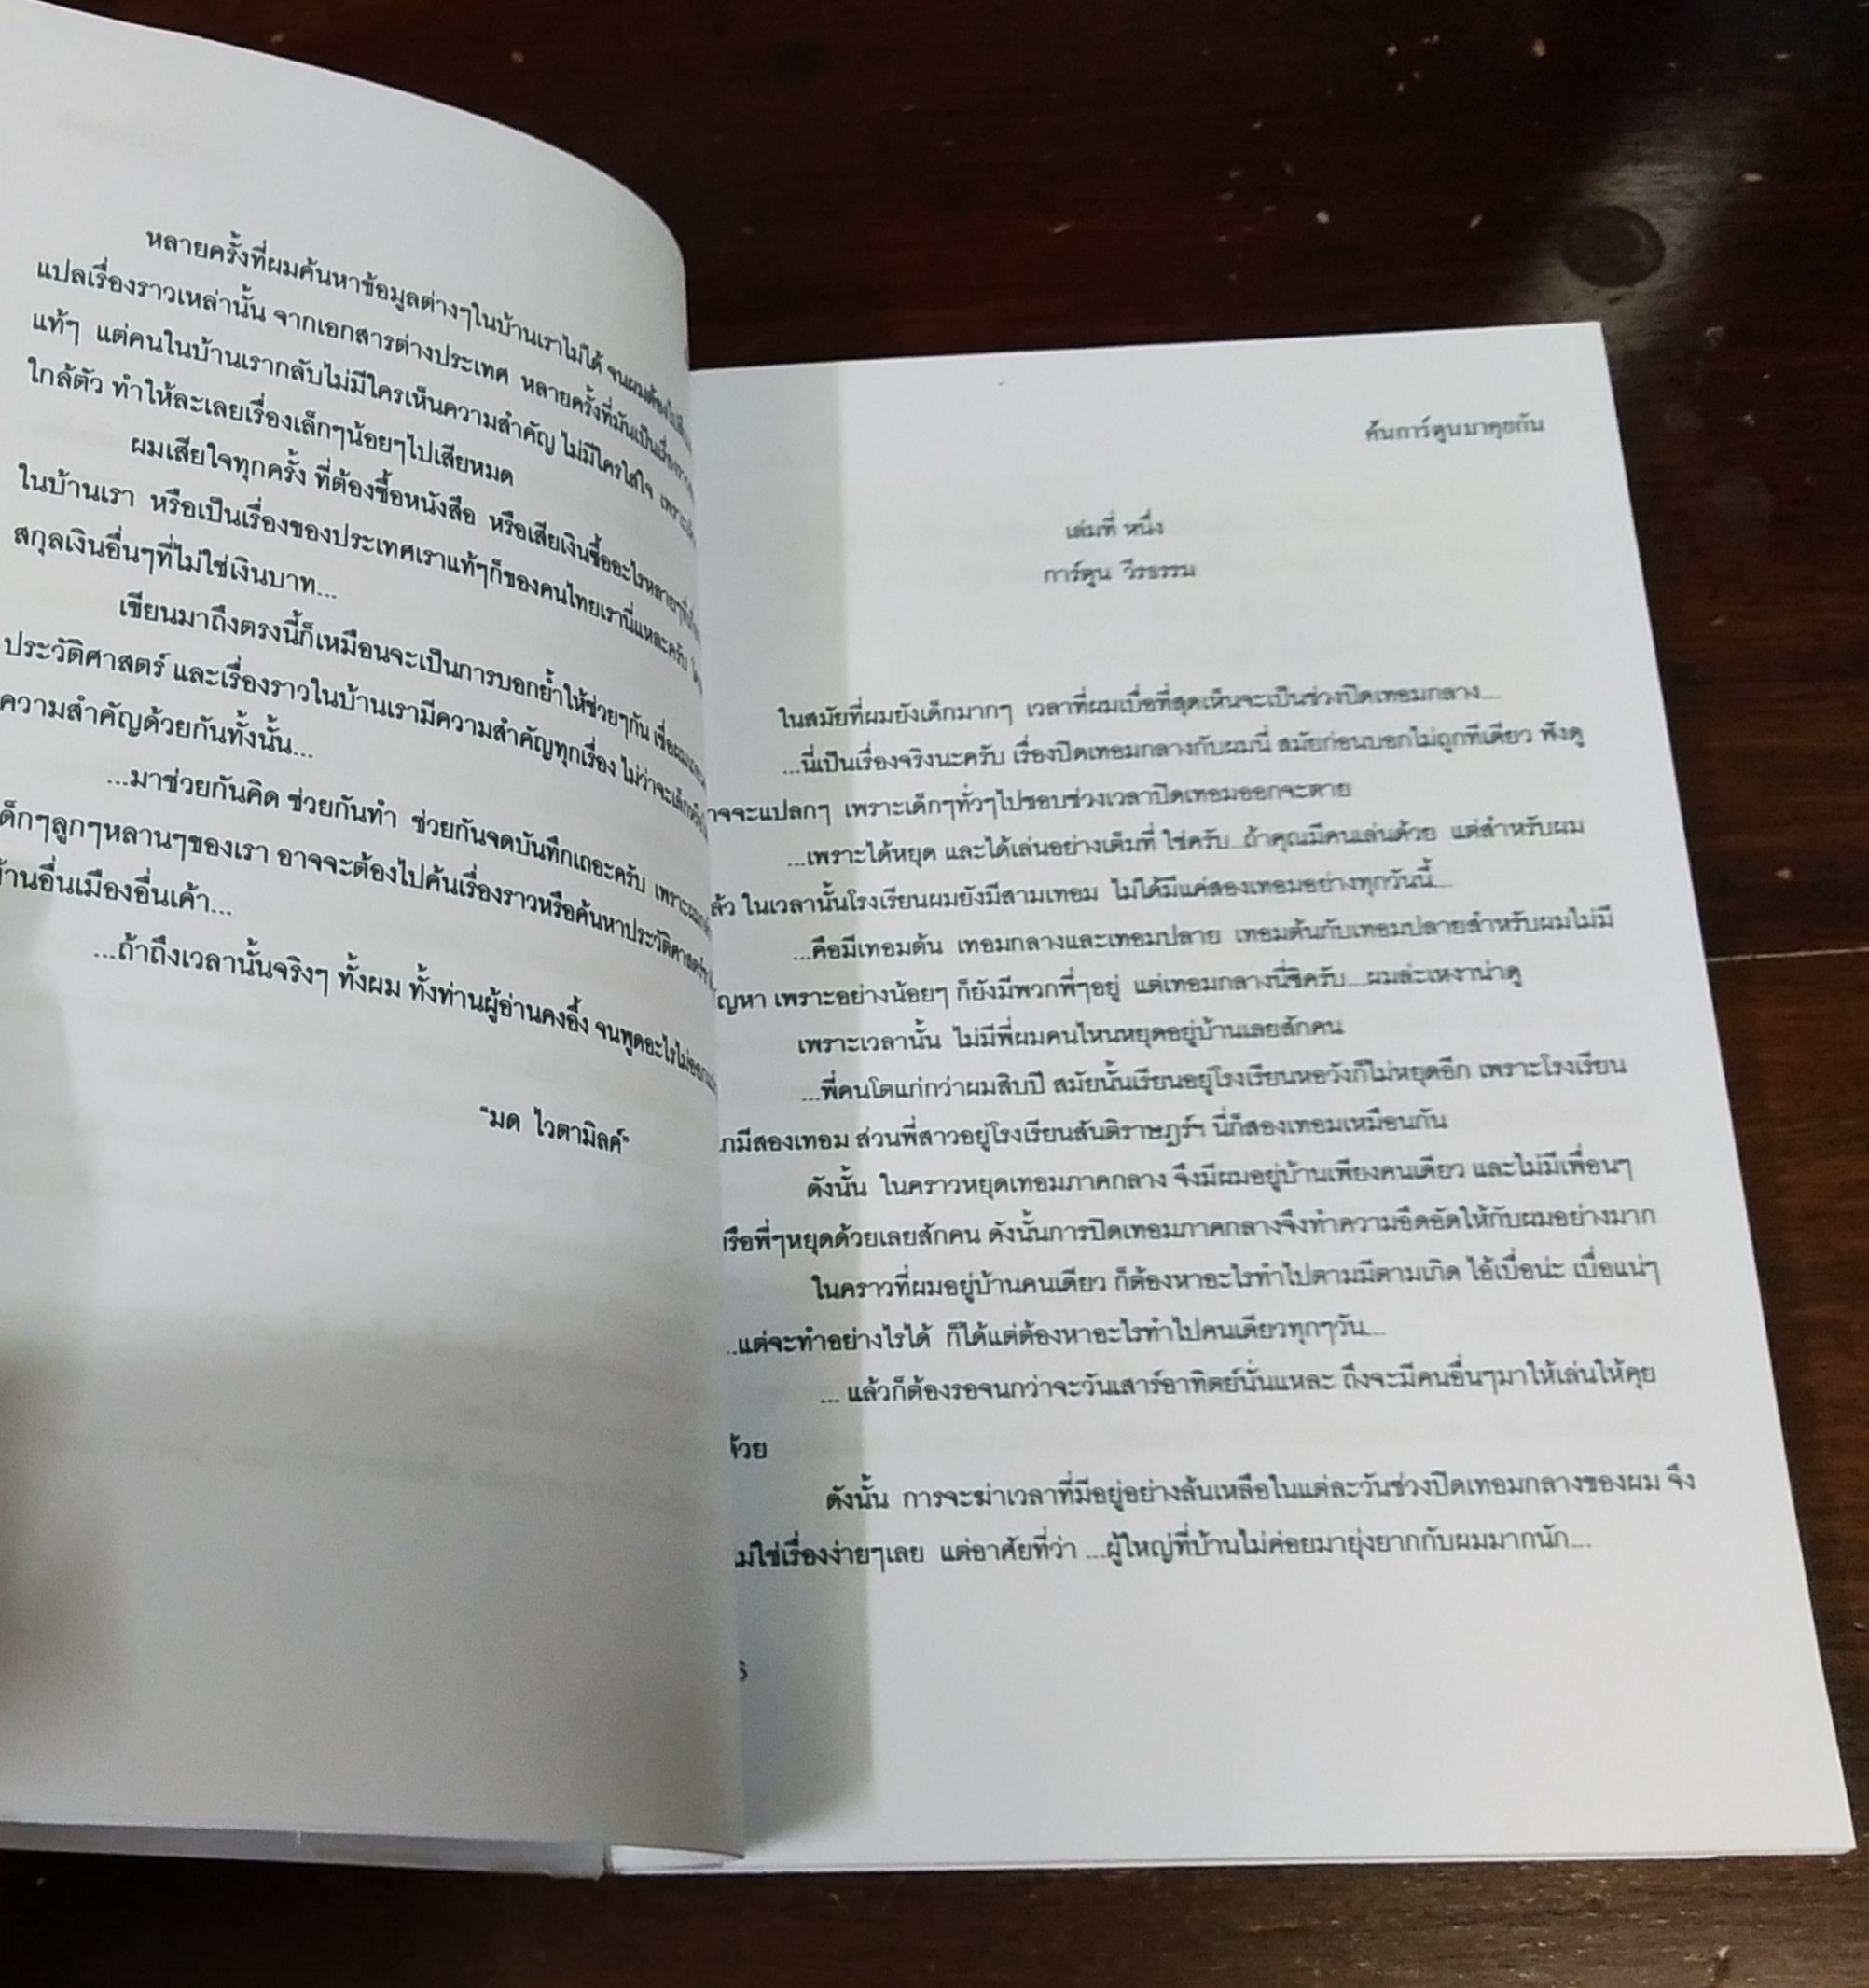 หลายครั้งที่ผมค้นหาข้อมูลต่างๆในบ้านเราไม่ได้ จนผมต้อง
แปลเรื่องราวเหล่านั้น จากเอกสารต่างประเทศ หลายครั้งที่มันเป็น
แท้ๆ แต่คนในบ้านเรากลับไม่มีใครเห็นความสำคัญ ไม่มีใครใส่ใจ
ใกล้ตัว ทำให้ละเลยเรื่องเล็กๆน้อยๆไปเสียหมด
ผมเสียใจทุกครั้ง ที่ต้องซื้อหนังสือ หรือเสียเงินซื้ออะไรหลายๆ
ในบ้านเรา หรือเป็นเรื่องของประเทศเราแท้ๆก็ของคนไทยเรานี่แหละครับ
สกุลเงินอื่นๆที่ไม่ใช่เงินบาท...
เขียนมาถึงตรงนี้ก็เหมือนจะเป็นการบอกย้ำให้ช่วยๆกัน
ประวัติศาสตร์ และเรื่องราวในบ้านเรามีความสำคัญทุกเรื่อง ไม่ว่าจะ
ความสำคัญด้วยกันทั้งนั้น...
...มาช่วยกันคิด ช่วยกันทำ ช่วยกันจดบันทึกเถอะครับ
ด็กๆลูกๆหลานๆของเรา อาจจะต้องไปค้นเรื่องราวหรือค้นหาประวัติศาสตร์
านอื่นเมืองอื่นเค้า...
...ถ้าถึงเวลานั้นจริงๆ ทั้งผม ทั้งท่านผู้อ่านคงอึ้ง จนพูดอะไรไม่ออก
"มด ไวตามิลค์"
ค้นการ์ตูนมาคุยกัน
เล่มที่ หนึ่ง
การ์ตูน วีรธรรม
ในสมัยที่ผมยังเด็กมากๆ เวลาที่ผมเบื่อที่สุดเห็นจะเป็นช่วงปิดเทอมกลาง....
...นี่เป็นเรื่องจริงนะครับ เรื่องปิดเทอมกลางกับผมนี่ สมัยก่อนบอกไม่ถูกทีเดียว ฟังดู
าจจะแปลกๆ เพราะเด็กๆทั่วๆไปชอบช่วงเวลาปิดเทอมออกจะตาย
...เพราะได้หยุด และได้เล่นอย่างเต็มที่ ใช่ครับ...ถ้าคุณมีคนเล่นด้วย แต่สำหรับผม
ล้ว ในเวลานั้นโรงเรียนผมยังมีสามเทอม ไม่ได้มีแค่สองเทอมอย่างทุกวันนี้....
...คือมีเทอมต้น เทอมกลางและเทอมปลาย เทอมต้นกับเทอมปลายสำหรับผมไม่มี
ัญหา เพราะอย่างน้อยๆ ก็ยังมีพวกพี่ๆอยู่ แต่เทอมกลางนี่ซิครับ....ผมล่ะเหงาน่าดู
เพราะเวลานั้น ไม่มีพี่ผมคนไหนหยุดอยู่บ้านเลยสักคน
...พี่คนโตแก่กว่าผมสิบปี สมัยนั้นเรียนอยู่โรงเรียนหอวังก็ไม่หยุดอีก เพราะโรงเรียน
มีสองเทอม ส่วนพี่สาวอยู่โรงเรียนสันติราษฎร์ฯ นี่ก็สองเทอมเหมือนกัน
ดังนั้น ในคราวหยุดเทอมภาคกลาง จึงมีผมอยู่บ้านเพียงคนเดียว และไม่มีเพื่อนๆ
รือพี่ๆหยุดด้วยเลยสักคน ดังนั้นการปิดเทอมภาคกลางจึงทำความอึดอัดให้กับผมอย่างมาก
ในคราวที่ผมอยู่บ้านคนเดียว ก็ต้องหาอะไรทำไปตามมีตามเกิด ไอ้เบื่อน่ะ เบื่อแน่ๆ
..แต่จะทำอย่างไรได้ ก็ได้แต่ต้องหาอะไรทำไปคนเดียวทุกๆวัน....
... แล้วก็ต้องรอจนกว่าจะวันเสาร์อาทิตย์นั่นแหละ ถึงจะมีคนอื่นๆมาให้เล่นให้คุย
้วย
ดังนั้น การจะฆ่าเวลาที่มีอยู่อย่างล้นเหลือในแต่ละวันช่วงปิดเทอมกลางของผม จึง
ม่ใช่เรื่องง่ายๆเลย แต่อาศัยที่ว่า ...ผู้ใหญ่ที่บ้านไม่ค่อยมายุ่งยากกับผมมากนัก...
6